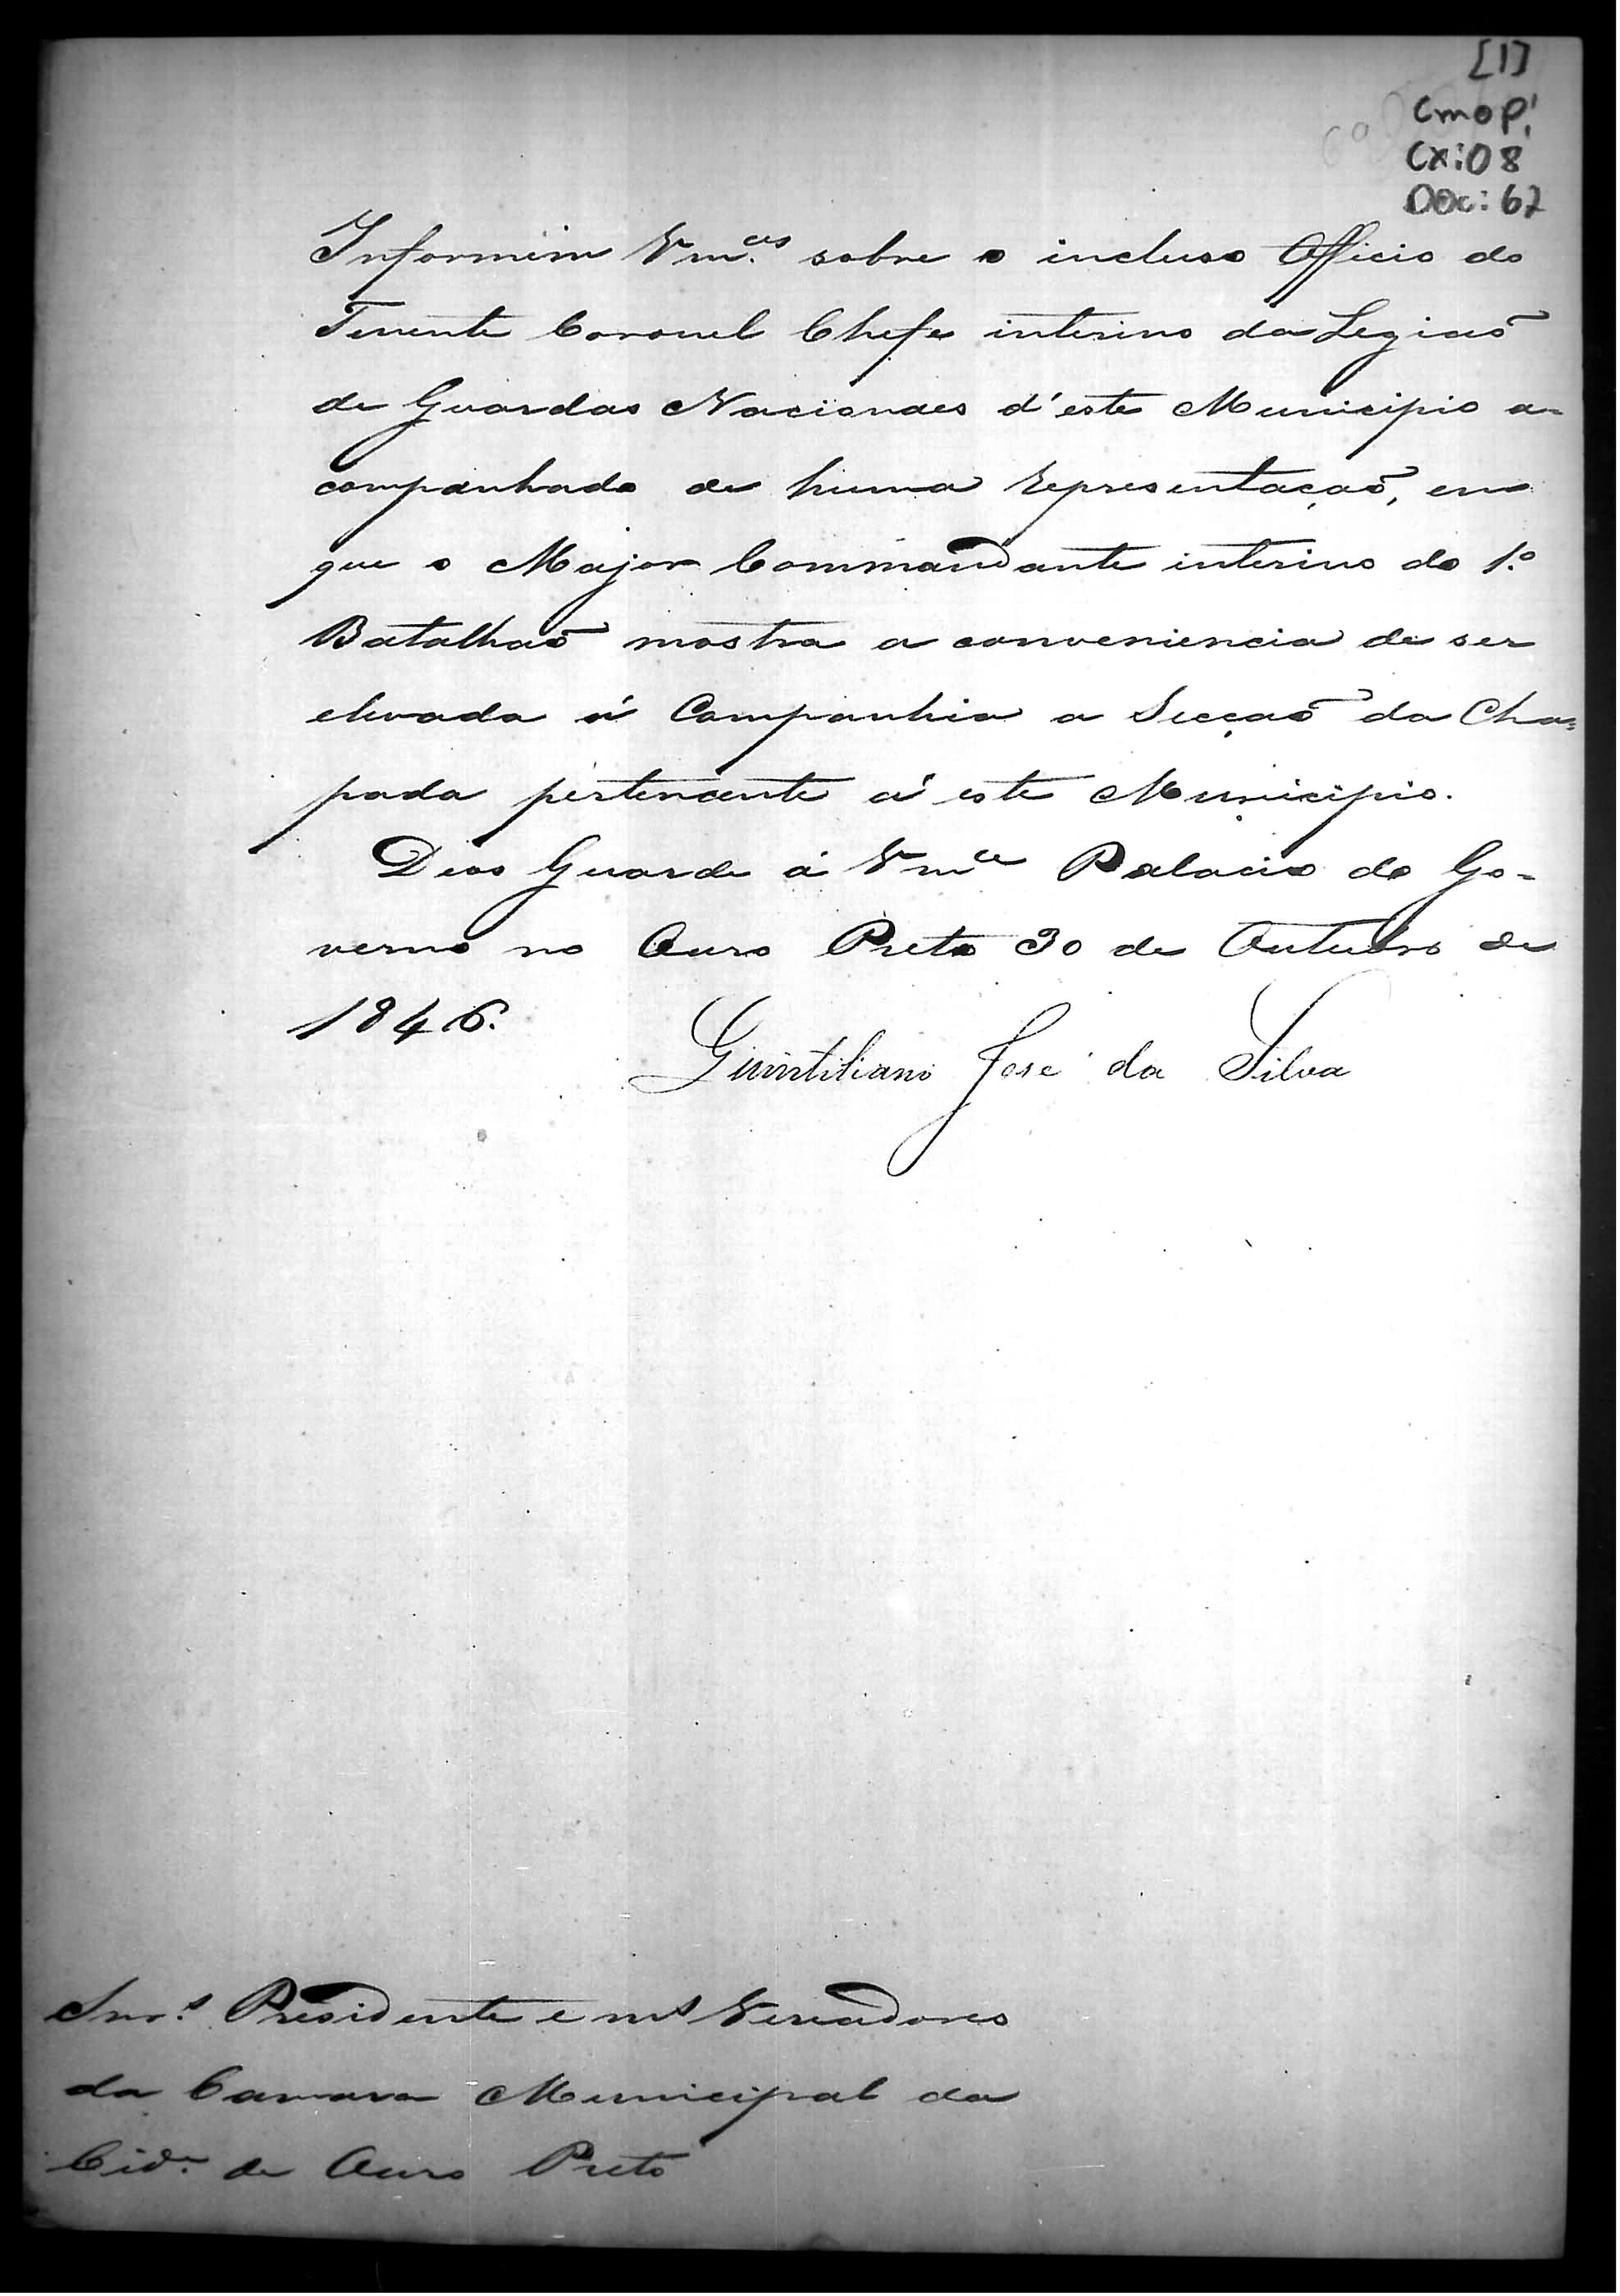 [1]
CMOP!
CX:08
DOC:62
Informem Vm.ces sobre o incluso Officio do
Tenente Coronel Chefe interino da Legiaõ
de Guardas Nacionaes d'este Municipio a-
companhado de huma representaçaõ, em
que o Major Commandante interino do 1.º
Batalhaõ mostra a conveniencia de ser
elevada á Companhia a Secçaõ da Cha=
pada pertencente á este Municipio.
Deos Guarde á Vmce Palacio do Go-
verno no Ouro Preto 30 de Outubro de
1846.
Quintiliano José da Silva
Snr.s Presidente e ms Vereadores
da Camara Municipal da
Cid.e de Ouro Preto